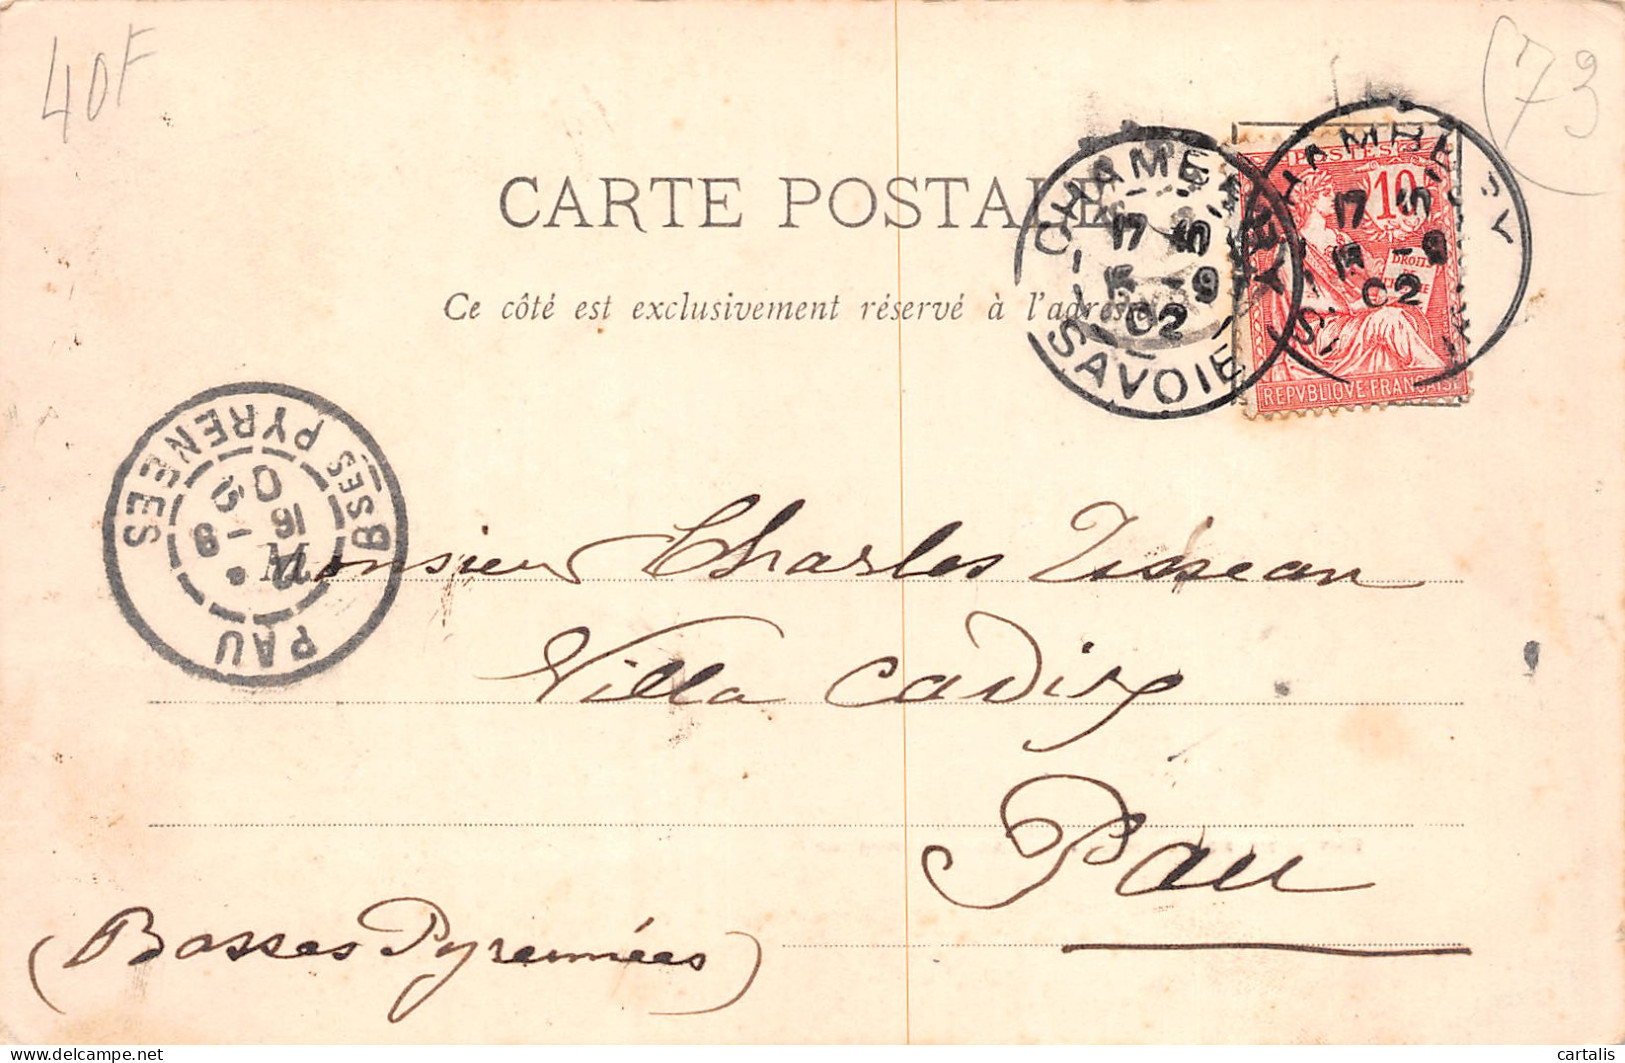 40F
(73
CARTE POSTALE
Ce côté est exclusivement réservé à l'adresse
CHAMBERY
17 15
15 -9
02
SAVOIE
CHAMBERY
17 15
15 -9
02
POSTES
10
DROITS
DE
REPVBLIQVE FRANCAISE
PAU
BSES PYRENEES
16
9
02
Monsieur Charles Tisseau
Villa Cadix
Pau
(Basses Pyrennées)
delcampe.net
cartalis